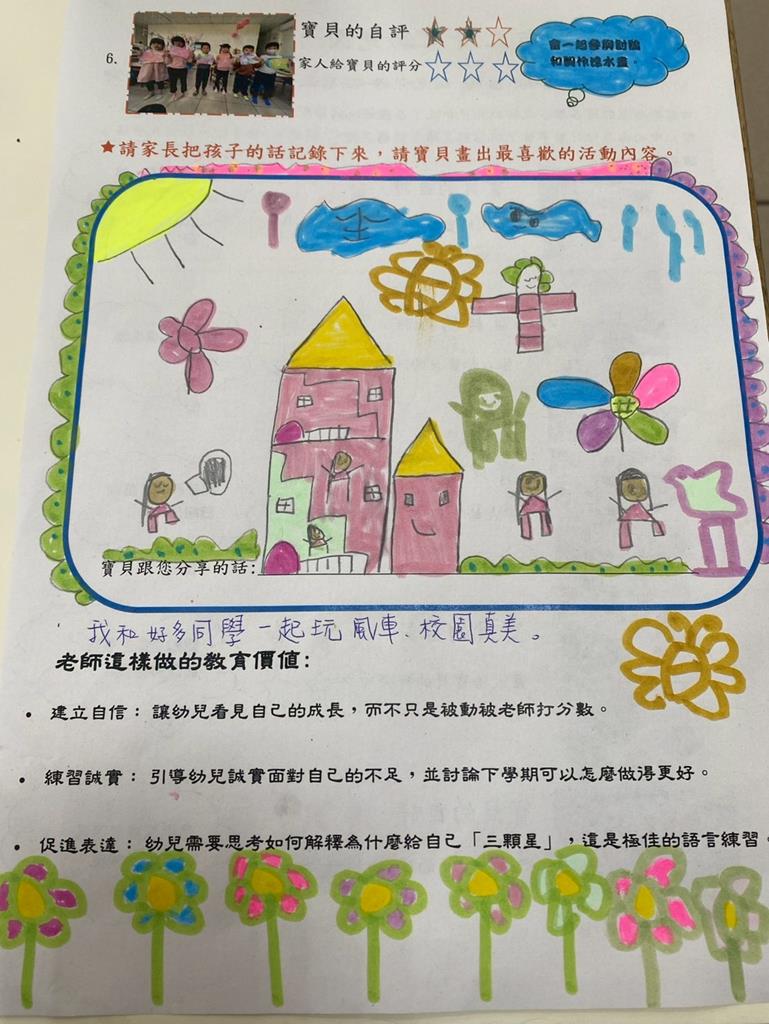 寶貝的自評
6.
會一起參與討論
和製作造水畫。
家人給寶貝的評分
★請家長把孩子的話記錄下來，請寶貝畫出最喜歡的活動內容。
寶貝跟您分享的話：
我和好多同學一起玩風車、校園真美。
老師這樣做的教育價值：
• 建立自信：讓幼兒看見自己的成長，而不只是被動被老師打分數。
• 練習誠實：引導幼兒誠實面對自己的不足，並討論下學期可以怎麼做得更好。
• 促進表達：幼兒需要思考如何解釋為什麼給自己「三顆星」，這是極佳的語言練習。